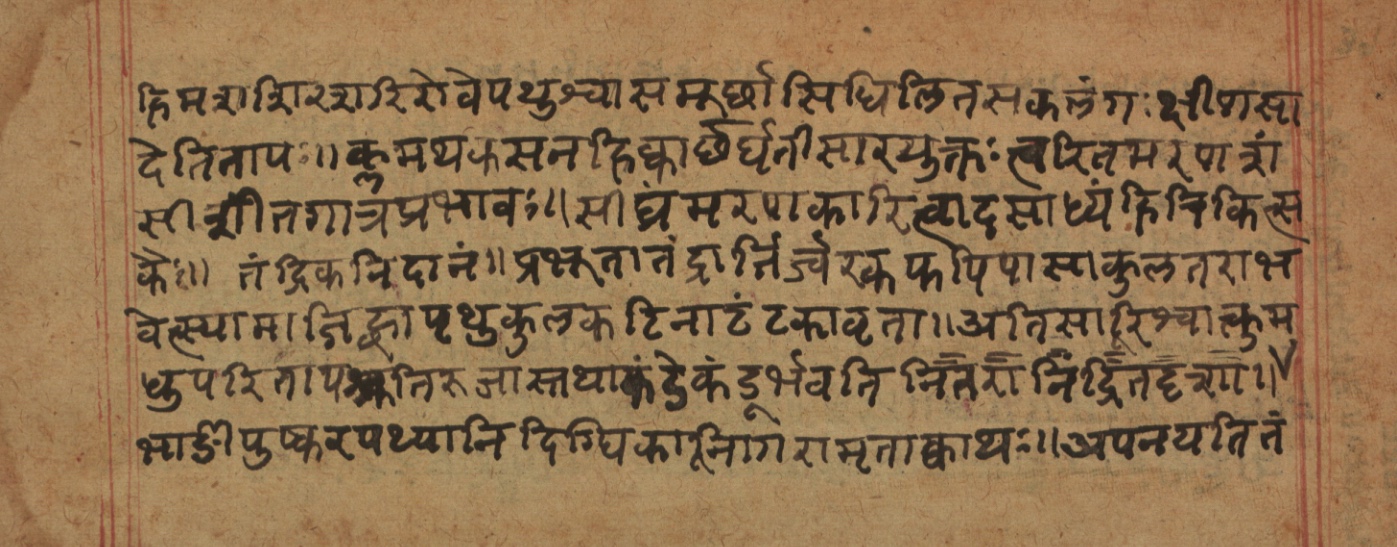 हिमशशिरशरिरोवेपथुश्वासमूर्छासिथिलितसकलंगःक्षीणसा
देतितापः॥क्लमथकसनहिक्काछर्द्यतीसारयुक्तःत्वरितमरणशं
सीशीतगात्रप्रभावः॥सीघ्रंमरणकारित्वादसाध्यंहिचिकित्स
कैः॥ तंद्रिकनिदानं॥प्रभूतातंद्रार्त्तिर्ज्वरकफपिपासाकुलतराभ
वेत्स्यामाजिह्वापृथुकुलकठिनाटंटकावृता॥अतिसारश्वासक्लम
थुपरितापश्रुतिरुजास्तथाकंठेकंडूर्भवति नितरां निंद्रितदृशा॥
भार्ङीपुष्करपथ्यानिदिग्धिकानागरामृताक्वाथः॥अपनयतितं